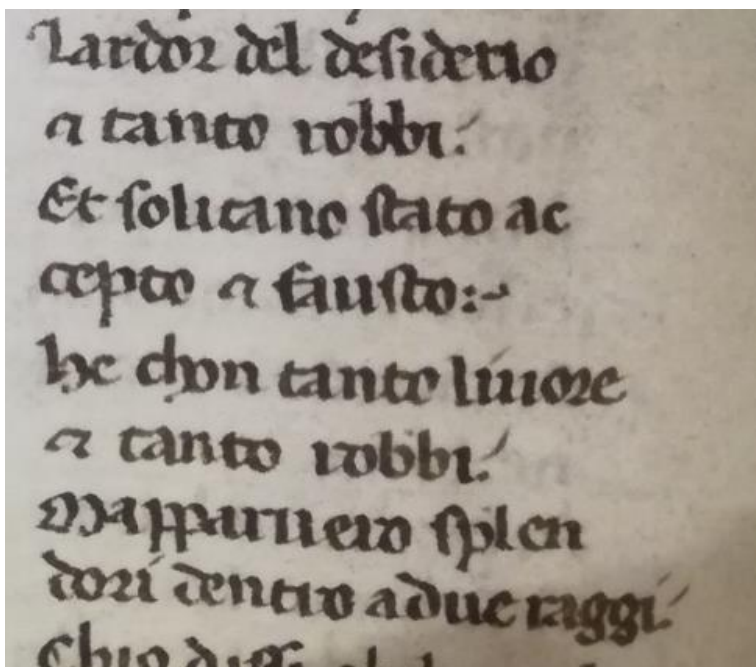 Lardor del desiderio
⁊ tanto robbi.
Et solitano stato ac
cepto ⁊ fausto:~
he chon tanto liuore
⁊ tanto robbi.
Mapparuero splen
dori dentro adue raggi
Chio diss